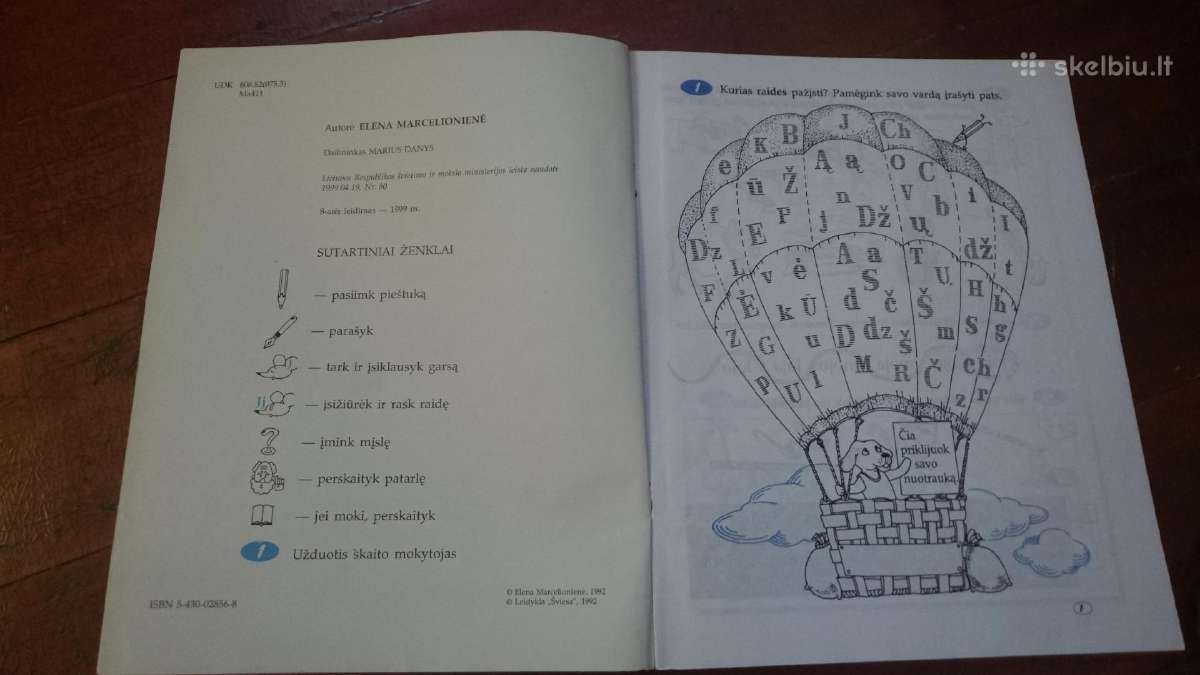 UDK 808.82(075.3)
Ma421
Autorė ELENA MARCELIONIENĖ
Dailininkas MARIUS DANYS
Lietuvos Respublikos švietimo ir mokslo ministerijos leista naudoti
1999 04 19, Nr. 80
8-asis leidimas — 1999 m.
SUTARTINIAI ŽENKLAI
— pasiimk pieštuką
— parašyk
— tark ir įsiklausyk garsą
— įsižiūrėk ir rask raidę
— įmink mįslę
— perskaityk patarlę
— jei moki, perskaityk
1 Užduotis skaito mokytojas
ISBN 5-430-02856-8
© Elena Marcelionienė, 1992
© Leidykla „Šviesa", 1992
skelbiu.lt
1 Kurias raides pažįsti? Pamėgink savo vardą įrašyti pats.
e k B J Ch
ū Ž Ą ą o C i
n V b
į E P j Dž ų I
Dz L v ė A a T Ų dž t
F Ė k Ū S d č Š H h
Z G u D dz Š m S g
P U l M R Č ch r
z
Čia
priklijuok
savo
nuotrauką
1